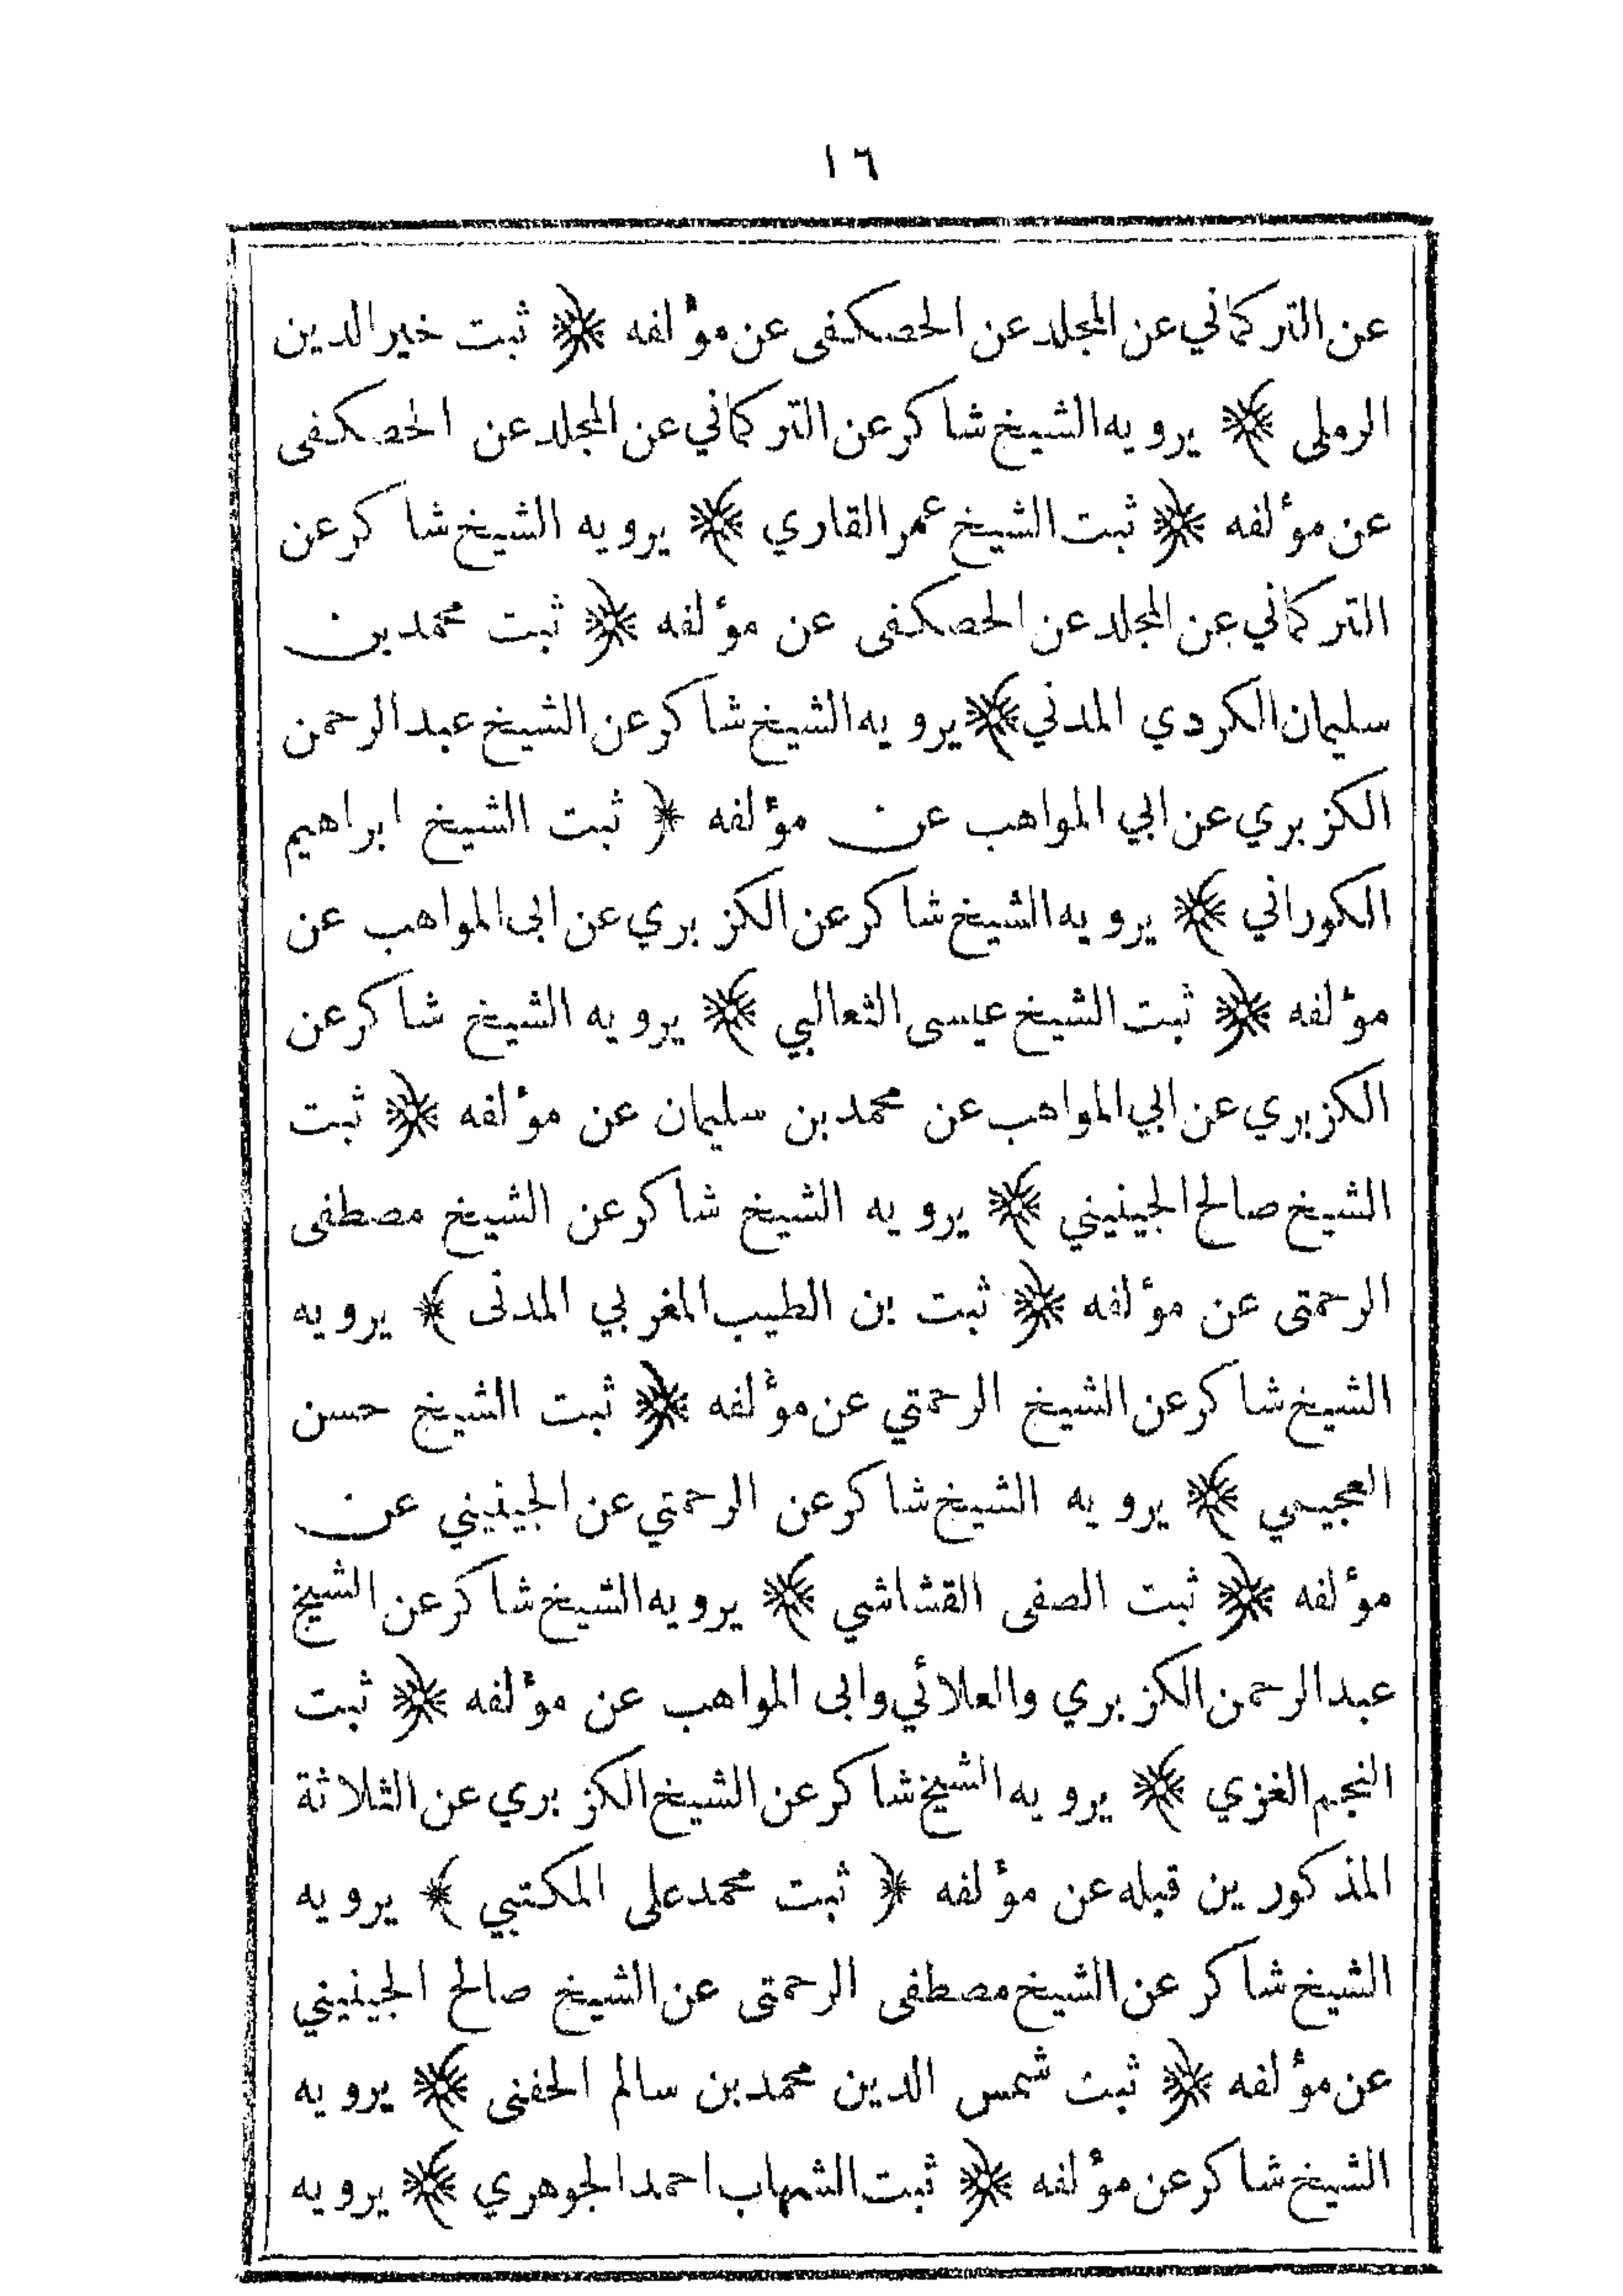 ١٦
عن التركماني عن المجلد عن الحصكفى عن مؤلفه ﴿ ثبت خير الدين
الرملى ﴾ يرويه الشيخ شاكر عن التركماني عن المجلد عن الحصكفى
عن مؤلفه ﴿ ثبت الشيخ عمر القاري ﴾ يرويه الشيخ شاكر عن
التركماني عن المجلد عن الحصكفى عن مؤلفه ﴿ ثبت محمد بن
سليمان الكردي المدني ﴾ يرويه الشيخ شاكر عن الشيخ عبد الرحمن
الكزبري عن ابي المواهب عن مؤلفه ﴿ ثبت الشيخ ابراهيم
الكوراني ﴾ يرويه الشيخ شاكر عن الكزبري عن ابى المواهب عن
مؤلفه ﴿ ثبت الشيخ عيسى الثعالبي ﴾ يرويه الشيخ شاكر عن
الكزبري عن ابي المواهب عن محمد بن سليمان عن مؤلفه ﴿ ثبت
الشيخ صالح الجينيني ﴾ يرويه الشيخ شاكر عن الشيخ مصطفى
الرحمتى عن مؤلفه ﴿ ثبت بن الطيب المغربي المدنى ﴾ يرويه
الشيخ شاكر عن الشيخ الرحمتي عن مؤلفه ﴿ ثبت الشيخ حسن
العجيمي ﴾ يرويه الشيخ شاكر عن الرحمتي عن الجينيني عن
مؤلفه ﴿ ثبت الصفى القشاشي ﴾ يرويه الشيخ شاكر عن الشيخ
عبد الرحمن الكزبري والعلائي وابى المواهب عن مؤلفه ﴿ ثبت
النجم الغزي ﴾ يرويه الشيخ شاكر عن الشيخ الكزبري عن الثلاثة
المذكورين قبله عن مؤلفه ﴿ ثبت محمد على المكتبي ﴾ يرويه
الشيخ شاكر عن الشيخ مصطفى الرحمتى عن الشيخ صالح الجينيني
عن مؤلفه ﴿ ثبت شمس الدين محمد بن سالم الحفنى ﴾ يرويه
الشيخ شاكر عن مؤلفه ﴿ ثبت الشهاب احمد الجوهري ﴾ يرويه